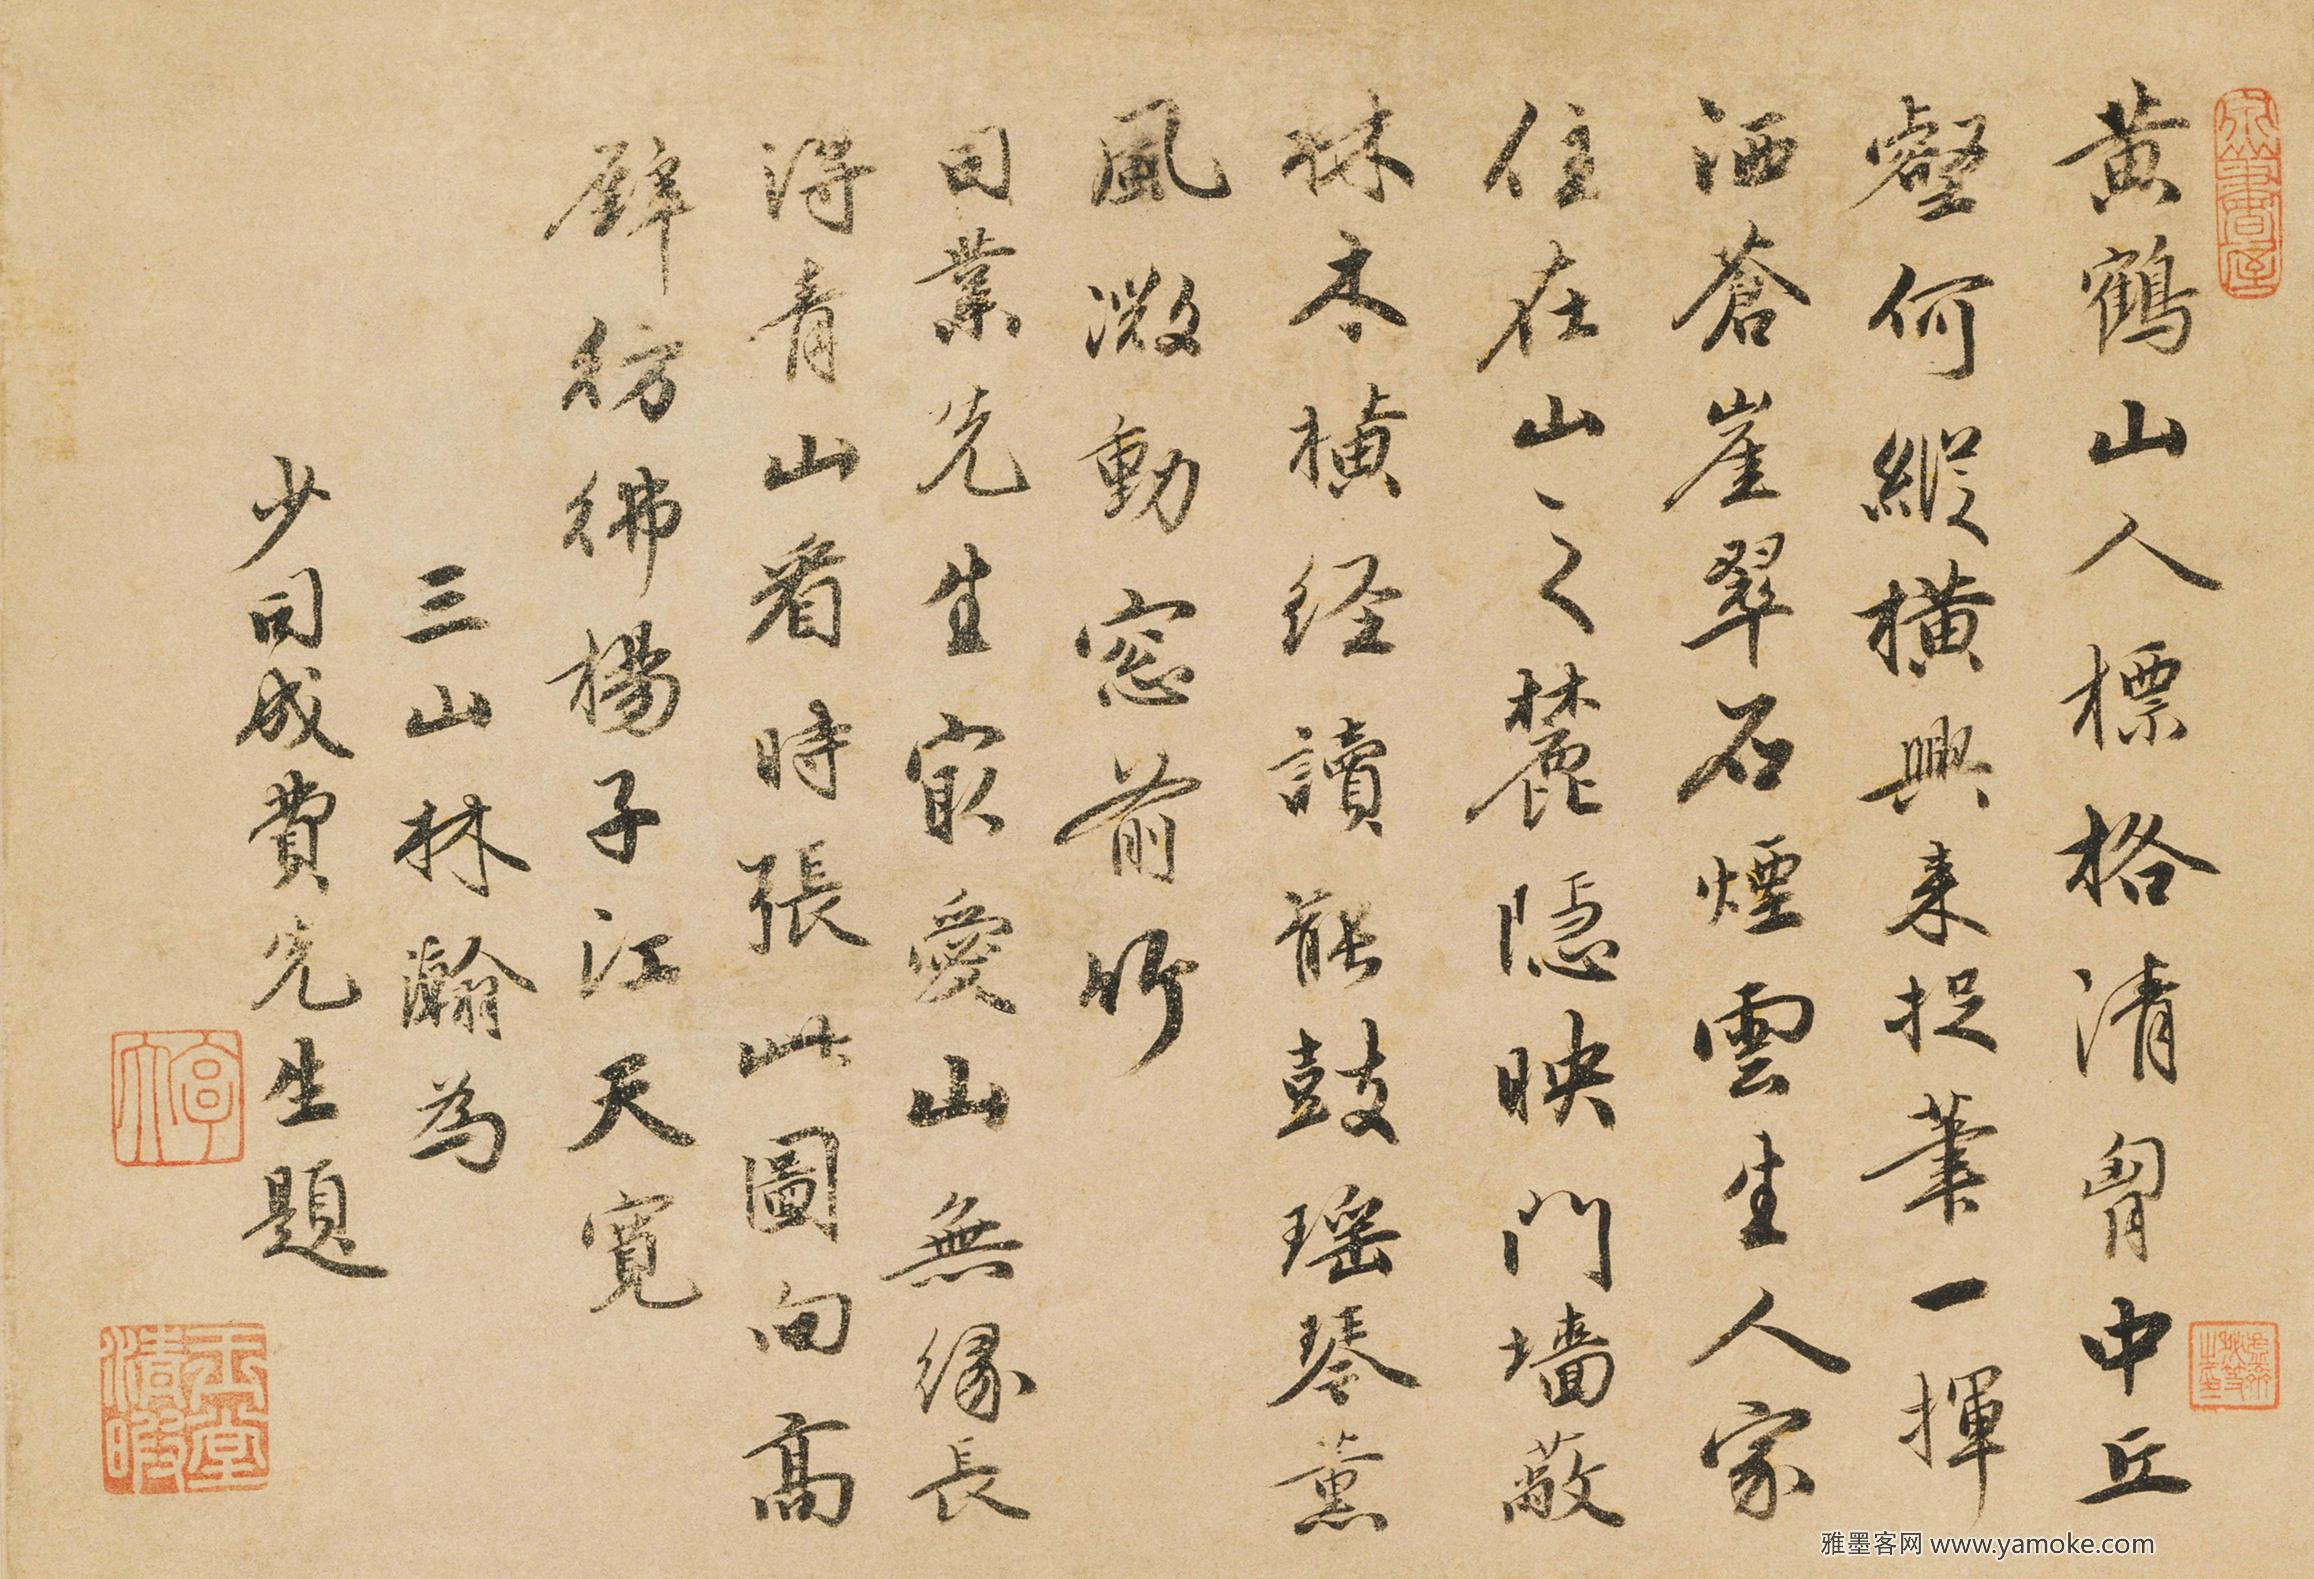 黄鶴山人標格清胷中丘
壑何縱橫興来捉筆一揮
洒蒼崖翠石煙雲生人家
住在山之麓隱映門墻蔽
林木横经讀罷鼓瑶琴薰
風微動窓前竹
司業先生最愛山無緣長
得青山看時張此圖向高
壁彷彿楊子江天寬
三山林瀚為
少司成費先生題
玉堂清暇
雅墨客网 www.yamoke.com